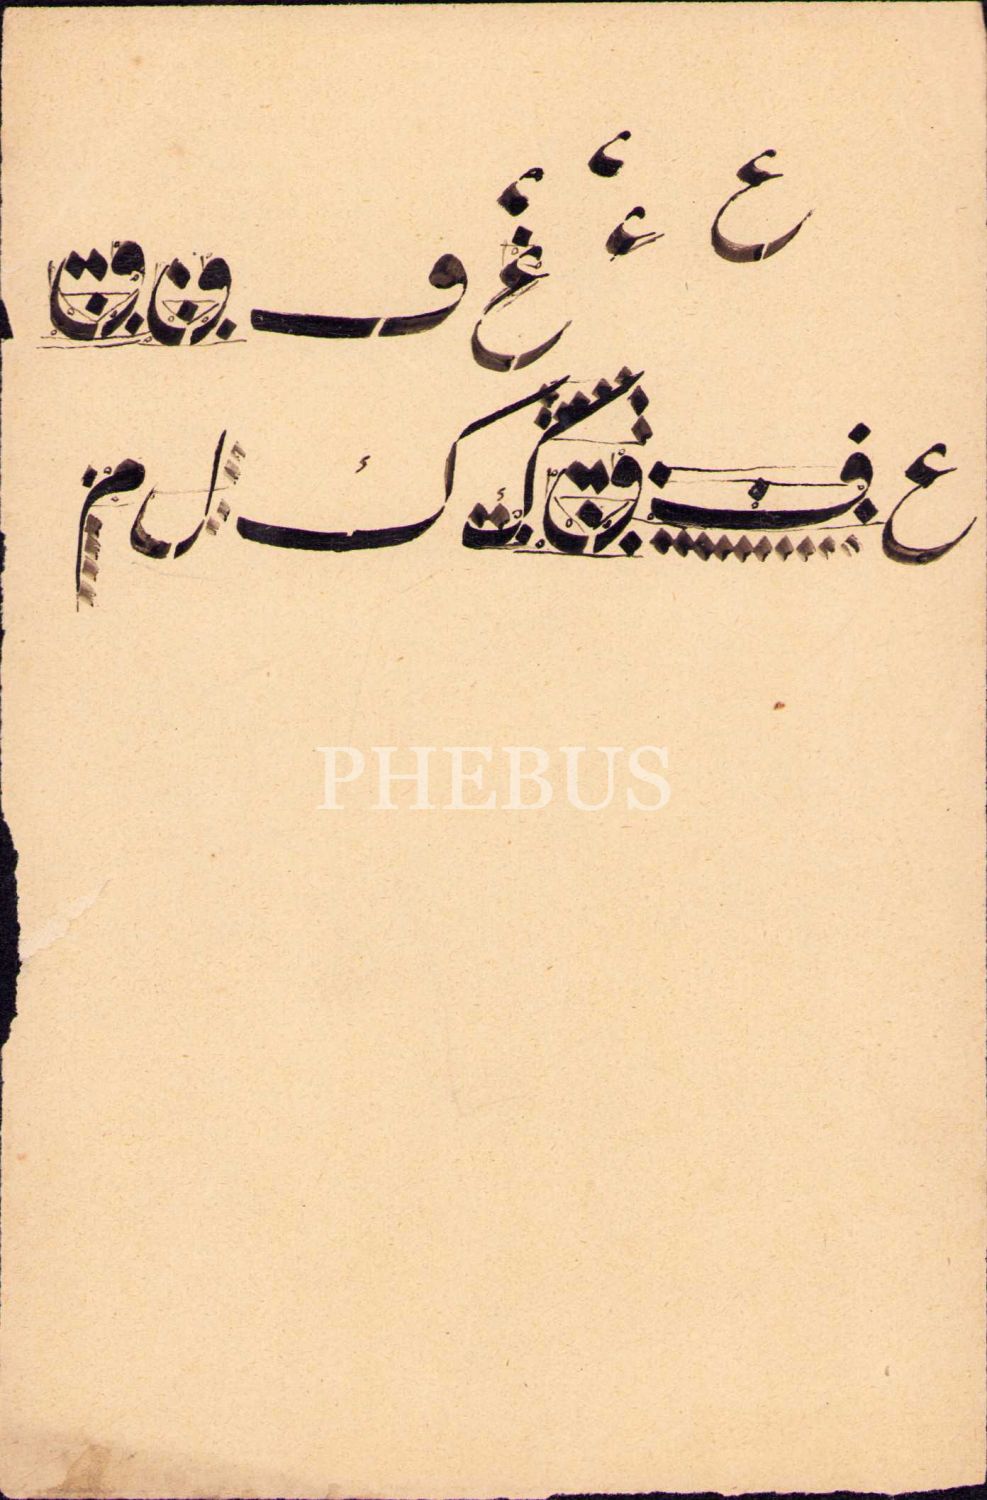 ع ء ء ء غ ف ق ق
ع ف ق ک ک ل م
PHEBUS